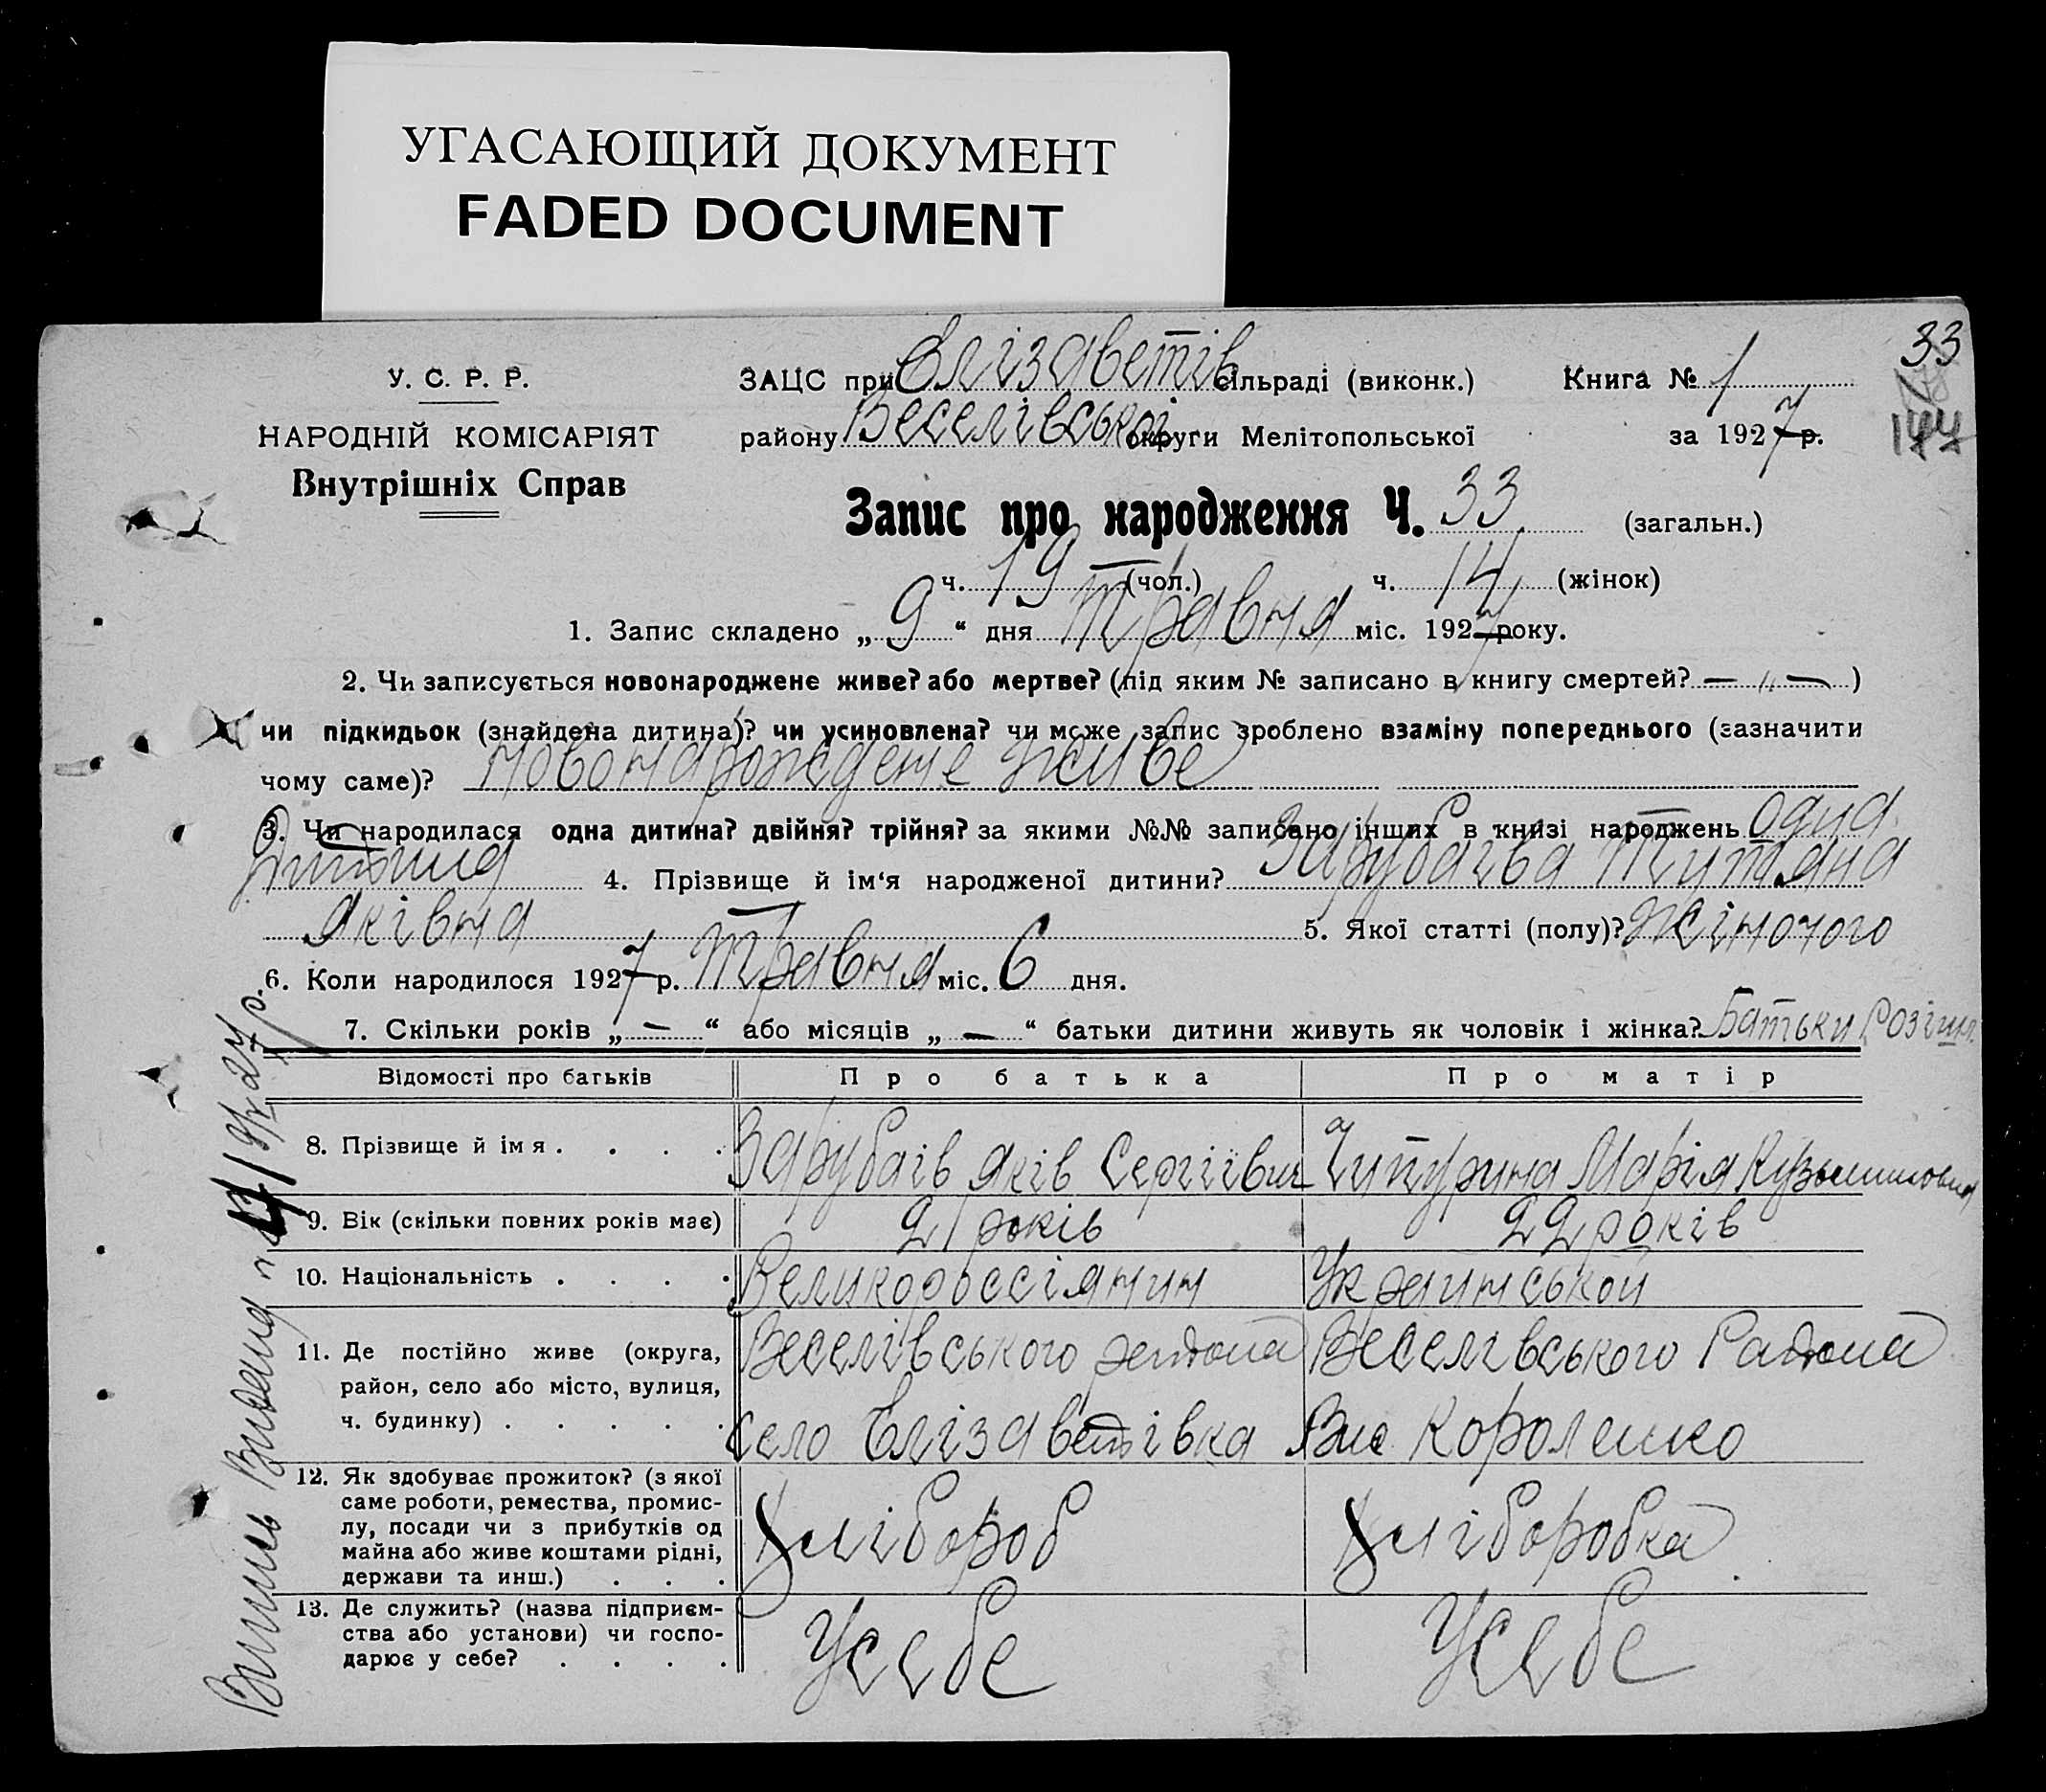 УГАСАЮЩИЙ ДОКУМЕНТ
FADED DOCUMENT
33
У. С. Р. Р.
НАРОДНІЙ КОМІСАРІЯТ
Внутрішніх Справ
ЗАЦС при Єлізаветів сільраді (виконк.)
району Веселівської округи Мелітопольської
Книга № 1
за 1927 р.
Запис про народження Ч. 33 (загальн.)
ч. 19 (чол.) ч. 14 (жінок)
1. Запис складено „ 9 “ дня Травня міс. 1927 року.
2. Чи записується новонароджене живе? або мертве? (під яким № записано в книгу смертей? — " — )
чи підкидьок (знайдена дитина)? чи усиновлена? чи може запис зроблено взаміну попереднього (зазначити
чому саме)? новонарождене живе
3. Чи народилася одна дитина? двійня? трійня? за якими №№ записано інших в книзі народжень одна
дитина 4. Прізвище й ім‘я народженої дитини? Зарубаєва Титяна
Яківна 5. Якої статті (полу)? Жіночого
6. Коли народилося 1927 р. Травня міс. 6 дня.
7. Скільки років „ — “ або місяців „ — “ батьки дитини живуть як чоловік і жінка? Батьки
Відомості про батьків Про батька Про матір
8. Прізвище й імя . . . . Зарубаїв Яків Сергіївич Чипурина Марія
9. Вік (скільки повних років має) 21 років 22 років
10. Національність . . . . Великороссіянин Украинськой
11. Де постійно живе (округа,
район, село або місто, вулиця,
ч. будинку) . . . . .
Веселівського района Веселівського Района
село Єлізаветівка Короленко
12. Як здобуває прожиток? (з якої
саме роботи, ремества, промис-
лу, посади чи з прибутків од
майна або живе коштами рідні,
держави та инш.) . . .
Хлібороб Хліборобка
13. Де служить? (назва підприєм-
ства або установи) чи госпо-
дарює у себе? . . . .
Усебе Усебе